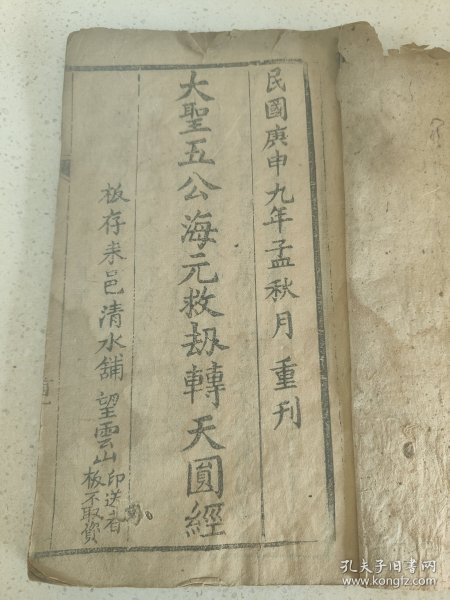 民國庚申九年孟秋月重刊
大聖五公海元救劫轉天圓經
板存耒邑清水舖望雲山印送者
板不取資
孔夫子旧书网
kongfz.com